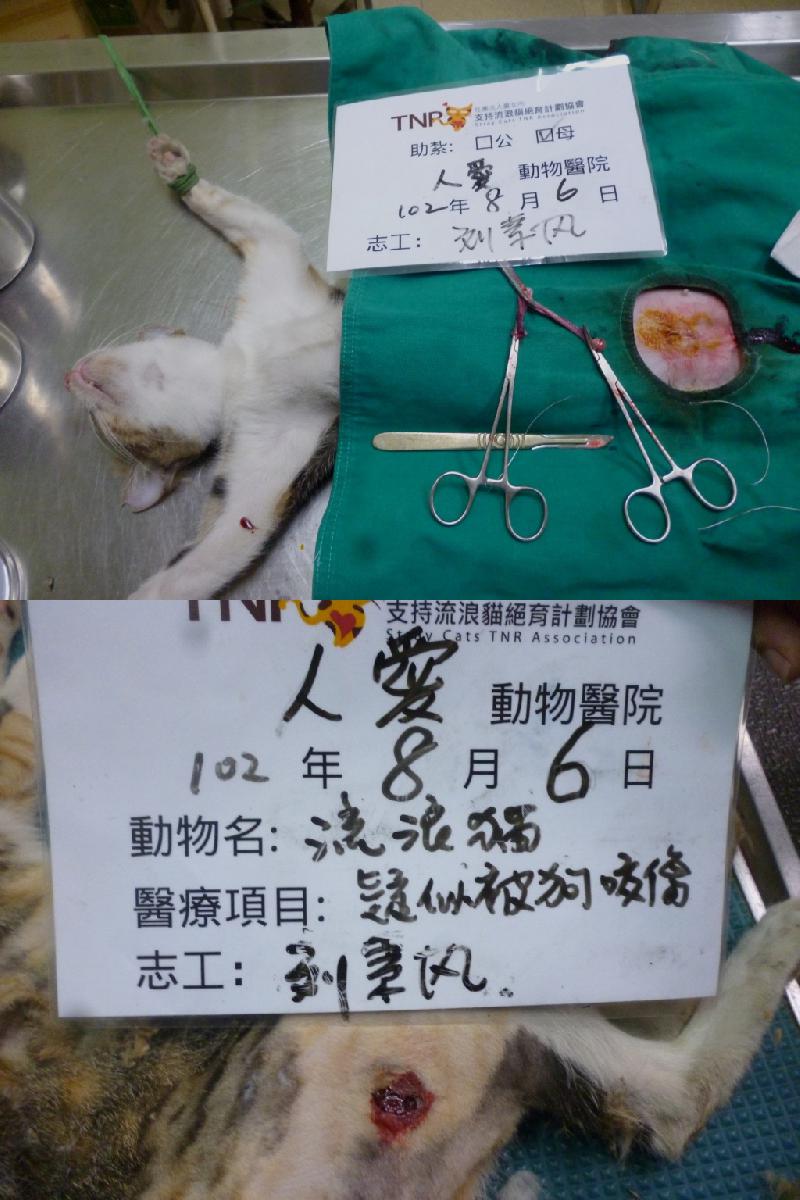 TNR 社團法人臺北市
支持流浪貓絕育計劃協會
Stray Cats TNR Association
助紮: □公 ☑母
人愛 動物醫院
102年 8 月 6 日
志工:
TNR 支持流浪貓絕育計劃協會
Stray Cats TNR Association
人愛 動物醫院
102 年 8 月 6 日
動物名: 流浪貓
醫療項目: 疑似被狗咬傷
志工: